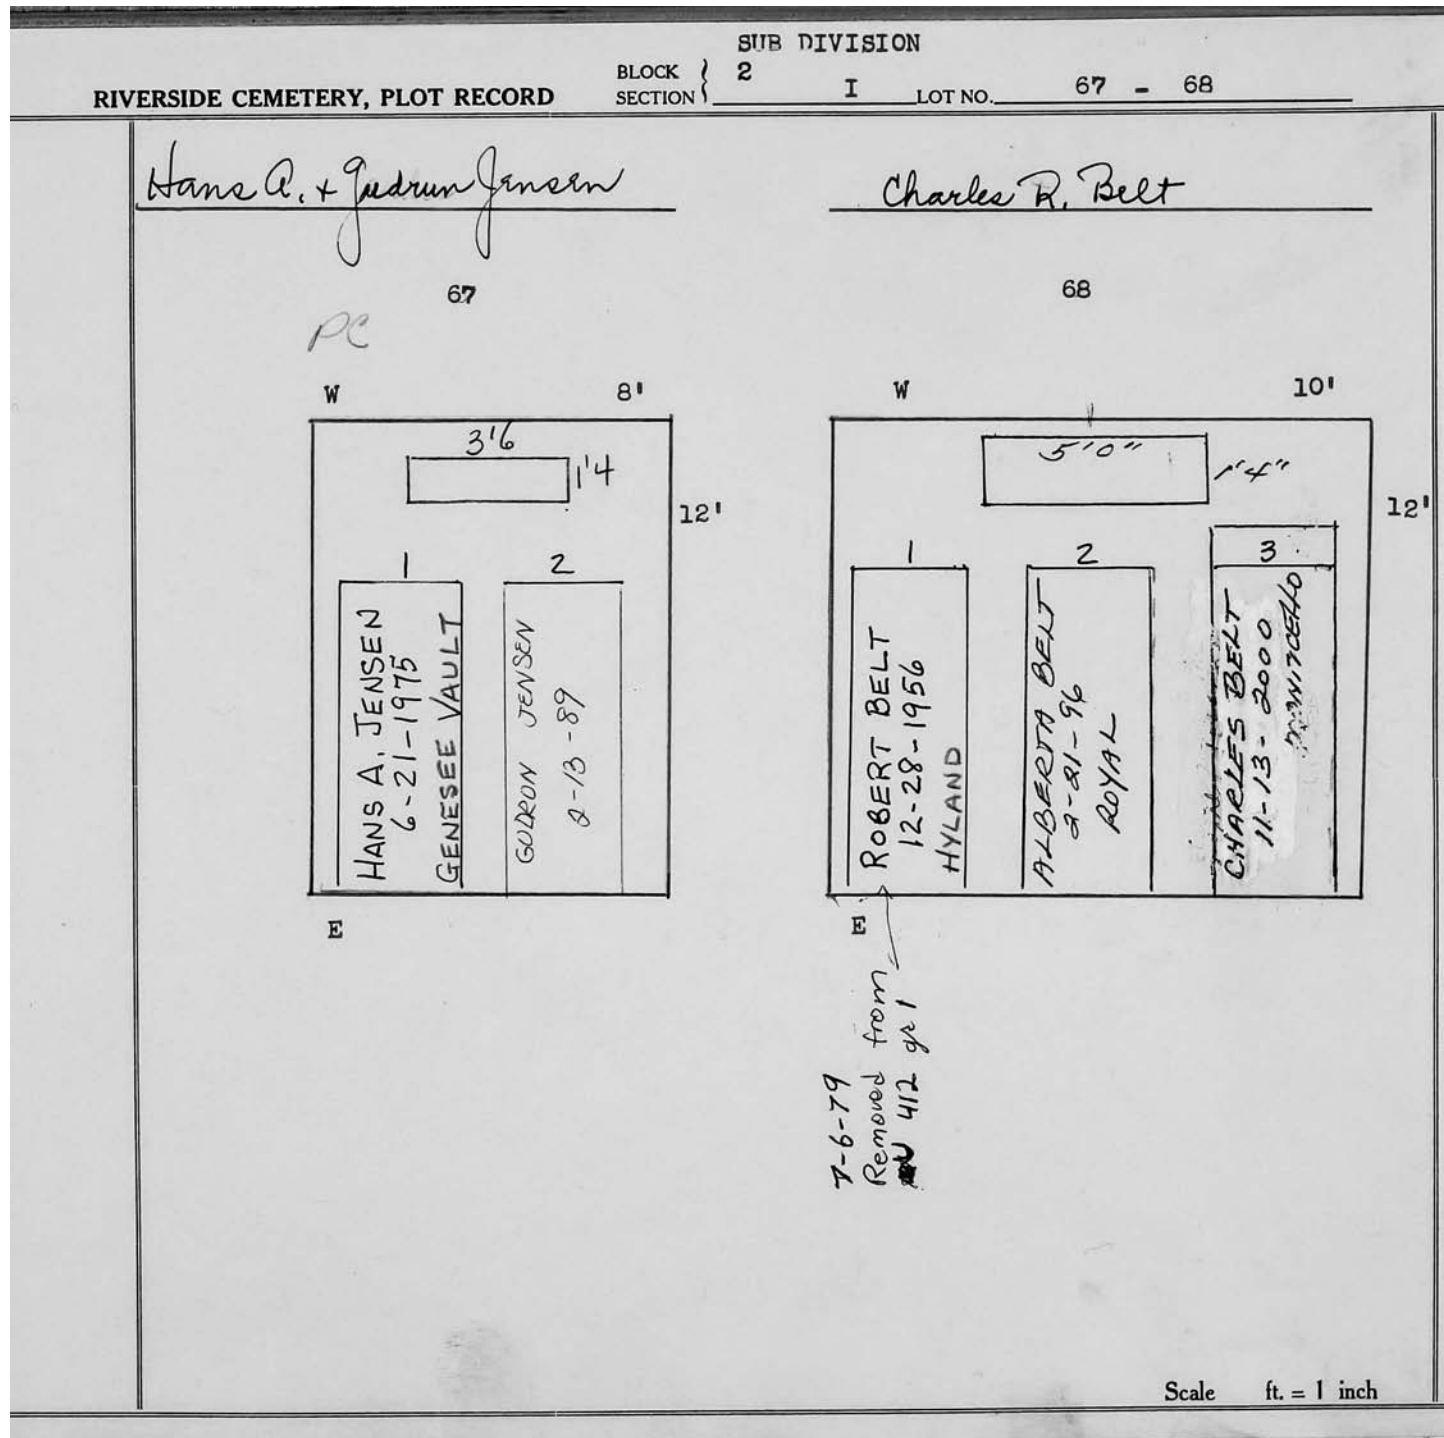 SUB DIVISION
BLOCK 2
RIVERSIDE CEMETERY, PLOT RECORD SECTION I LOT NO. 67 - 68
Hans A. + Gudrun Jensen
Charles R. Belt
67
68
PC
W 8'
3'6
1'4
12'
1
2
HANS A. JENSEN
6-21-1975
GENESEE VAULT
GUDRON JENSEN
2-13-89
E
W 10'
5'0"
1'4"
12'
1
2
3
ROBERT BELT
12-28-1956
HYLAND
ALBERTA BELT
2-21-96
ROYAL
CHARLES BELT
11-13-2000
MONITCELLO
E
7-6-79
Removed from
412 gr 1
Scale ft. = 1 inch